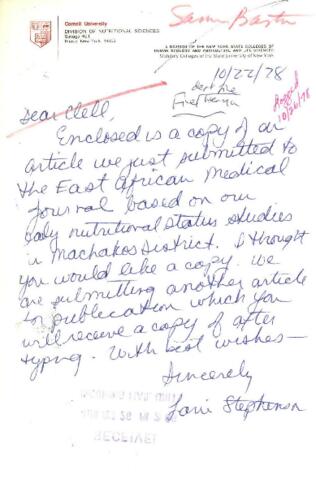 Cornell University
DIVISION OF NUTRITIONAL SCIENCES
Savage Hall
Ithaca, New York 14853
A DIVISION OF THE NEW YORK STATE COLLEGES OF
HUMAN ECOLOGY AND AGRICULTURE AND LIFE SCIENCES
Statutory Colleges of the State University of New York
10/22/78
10/26/78
Dear Clell,
Enclosed is a copy of an
article we just submitted to
the East African Medical
Journal based on our
early nutritional status studies
in Machakos District. I thought
you would like a copy. We
are submitting another article
for publication which you
will receive a copy of after
typing. With best wishes—
Sincerely
Lani Stephenson
RECEIVED